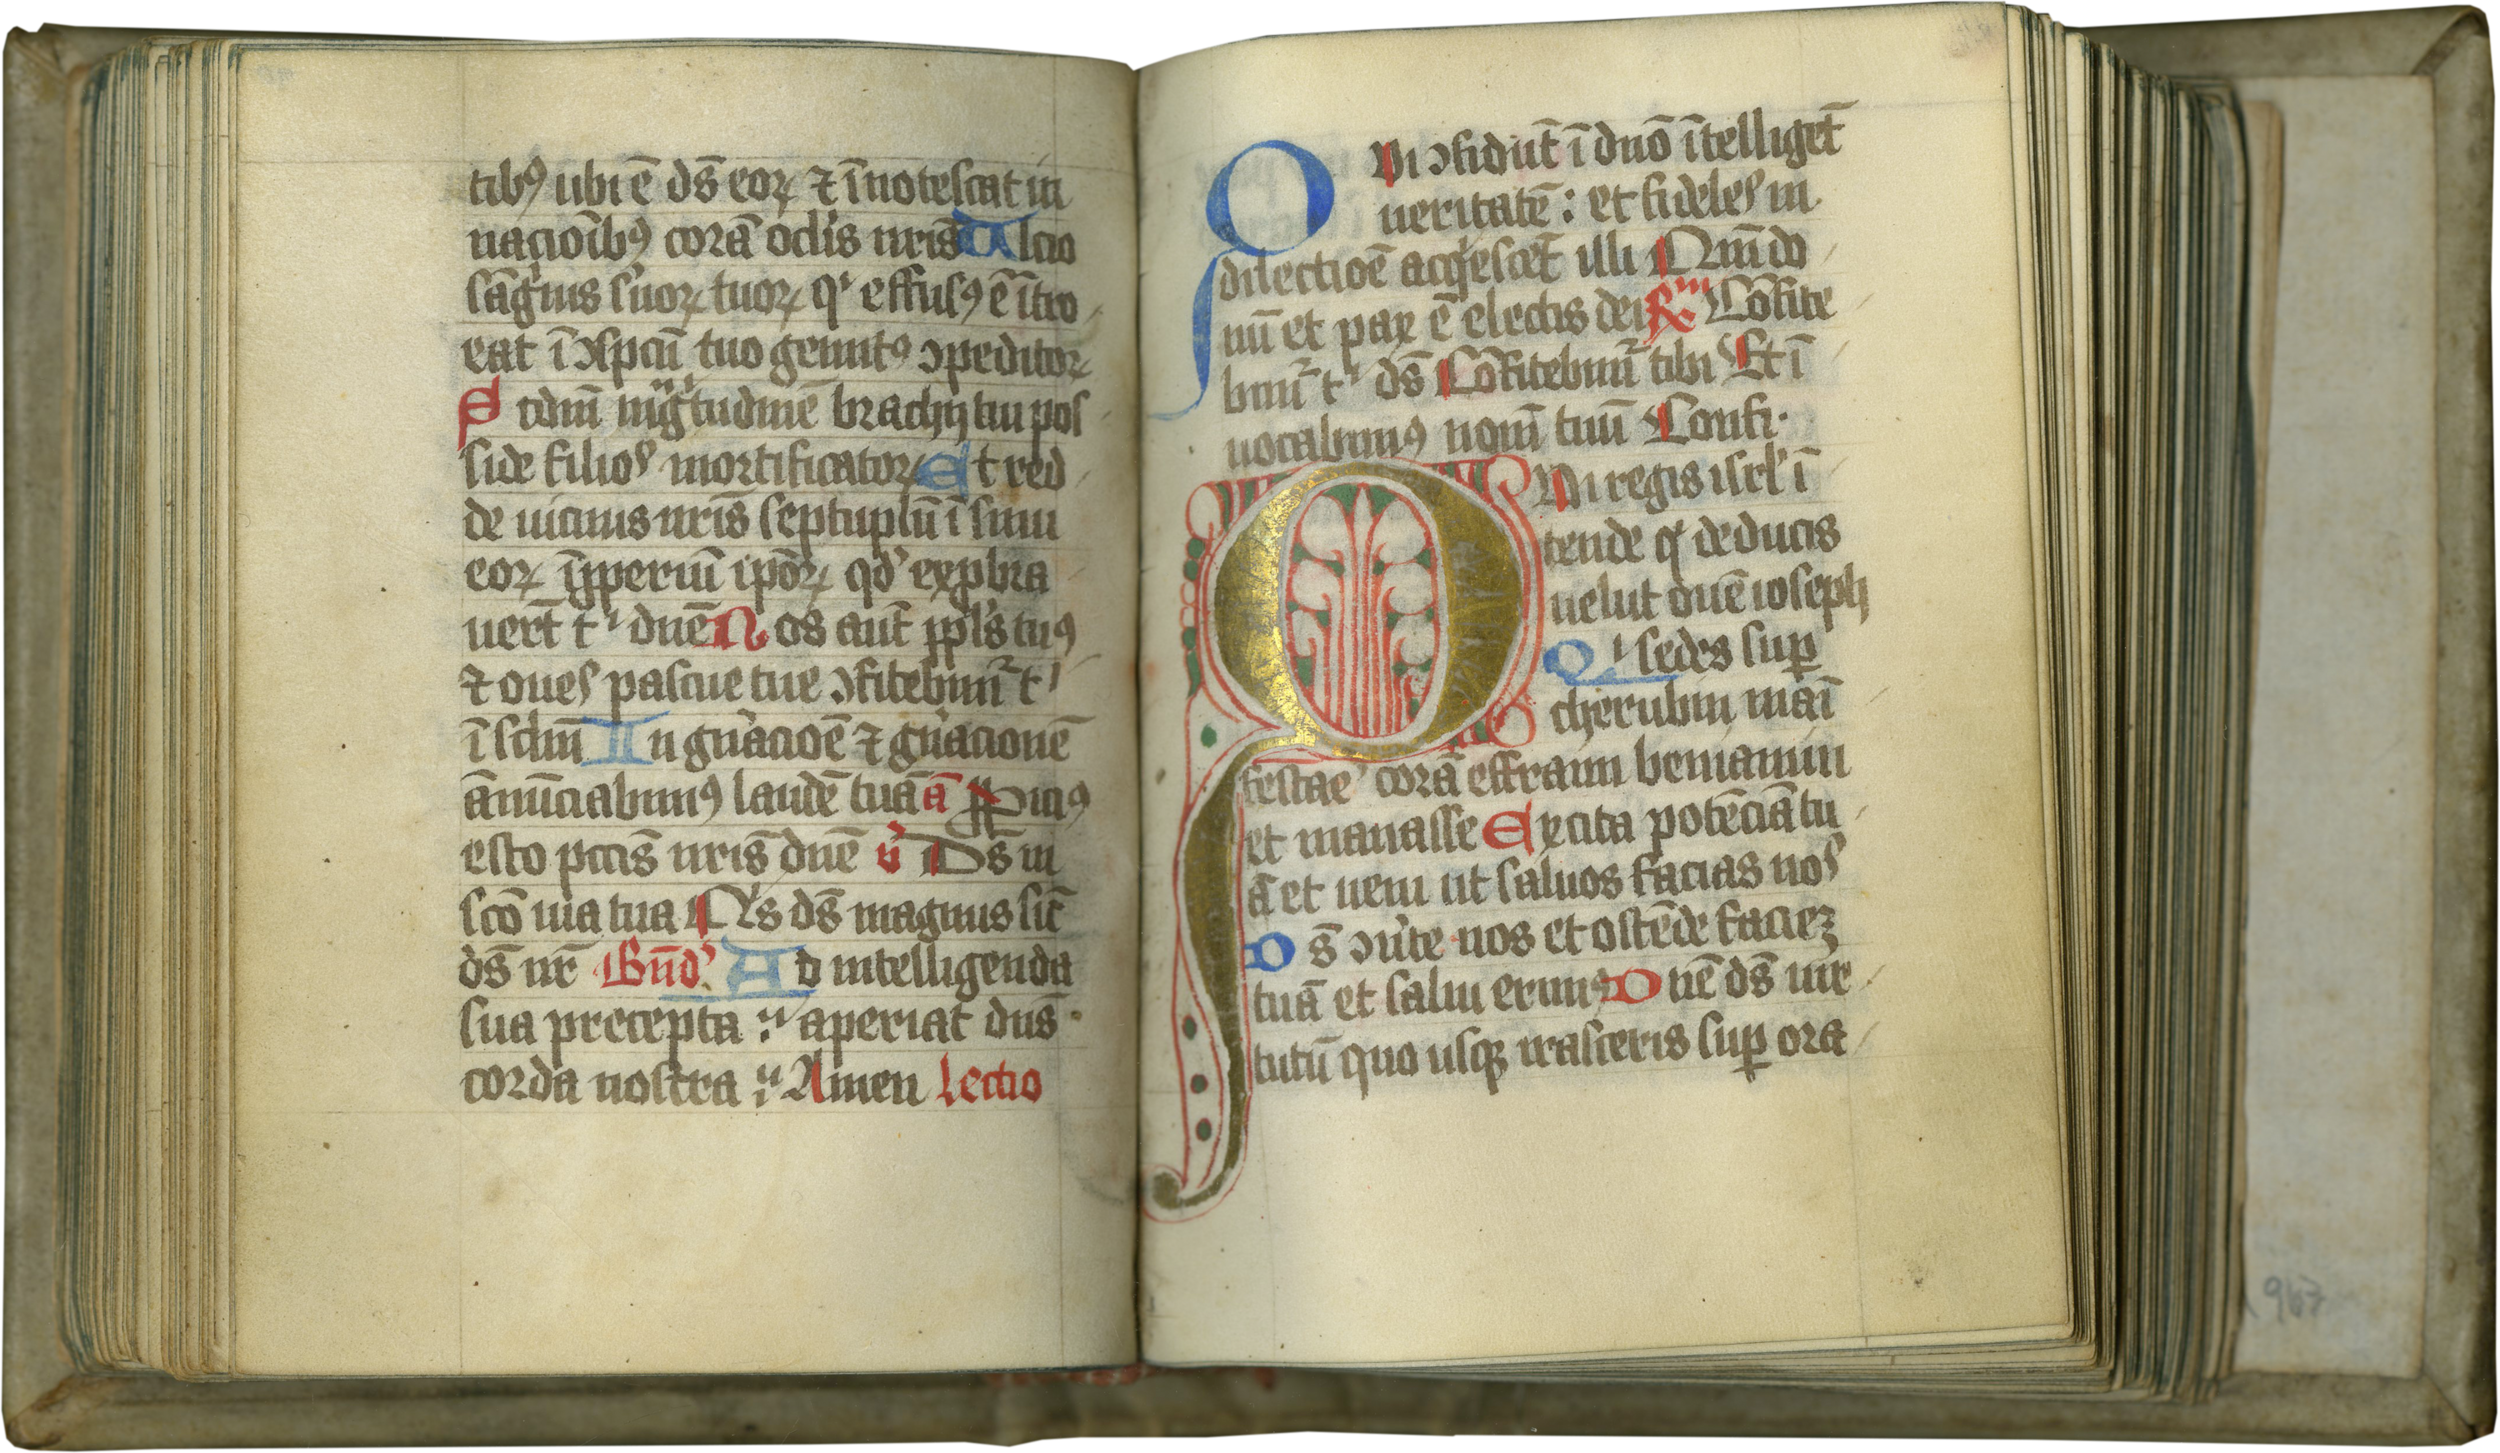 tibꝰ ubi ē ds̄ eoꝝ ⁊ īnotescat in
nacioībꝰ corā oclis nr̄is Ulcio
sāguis suoꝝ tuoꝝ qͥ effusꝰ ē ītro
eat ī ↄspcū tuo gemitꝰ ↄpeditoꝝ
Scdm̄ mg̅tudinē brachij tui pos
side filios mortificatoꝝ Et red
de uicinis nr̄is septuplū ī sinu
eoꝝ īpperiū ipōꝝ qd' expbra
uer̄t tͥ dn̄e Nos aut̄ pp̄ls tuꝰ
⁊ oues pascue tue ↄfitebim̄ tͥ
ī sclm̄ In gn̄acioē ⁊ gn̄acionē
ānūciabimꝰ laudē tuā ā Ppiciꝰ
esto pccis nr̄is dn̄e v̄ Ds̄ in
scō uia tua Qͥs ds̄ magnus sic̄
ds̄ nr̄ Bn̄d' Ad intelligenda
sua precepta :' aperiat dn̄s
corda nostra :' Amen Lectio
Qui ↄfidūt ī dn̄o ītelliget̄
ueritatē : et fideles in
dilectioē acq'escēt illi Qm̄ do
nū et pax ē electis dei R̸m Cōfite
bim̄ tͥ ds̄ Cōfitebim̄ tibi Et ī
uocabimꝰ nom̄ tuū Confi·
Qui regis isrl' ī
tende qͥ deducis
uelut ouē ioseph
Qͥ sedes suꝑ
cherubin maī
festare corā effraim beniamin
et manasse Excita potēciā tu
ā et ueni ut saluos facias nos
Ds̄ ↄu'te nos et ostēde facieꝫ
tuā et salui erimꝰ Dn̄e ds̄ uir
tutū quo usqꝫ irasceris suꝑ ora
963